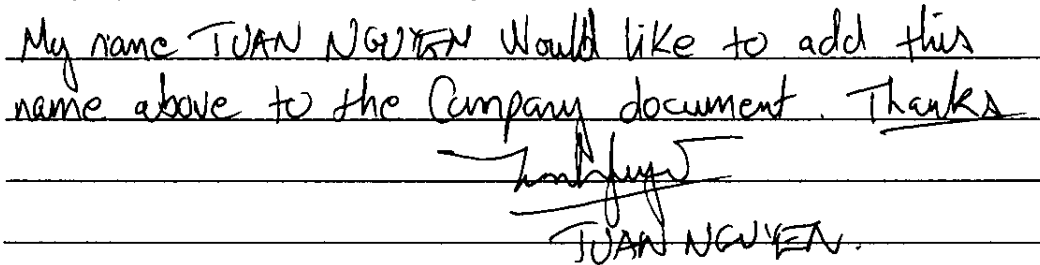 My name TUAN NGUYEN Would like to add this
name above to the Company document. Thanks
TUAN NGUYEN.